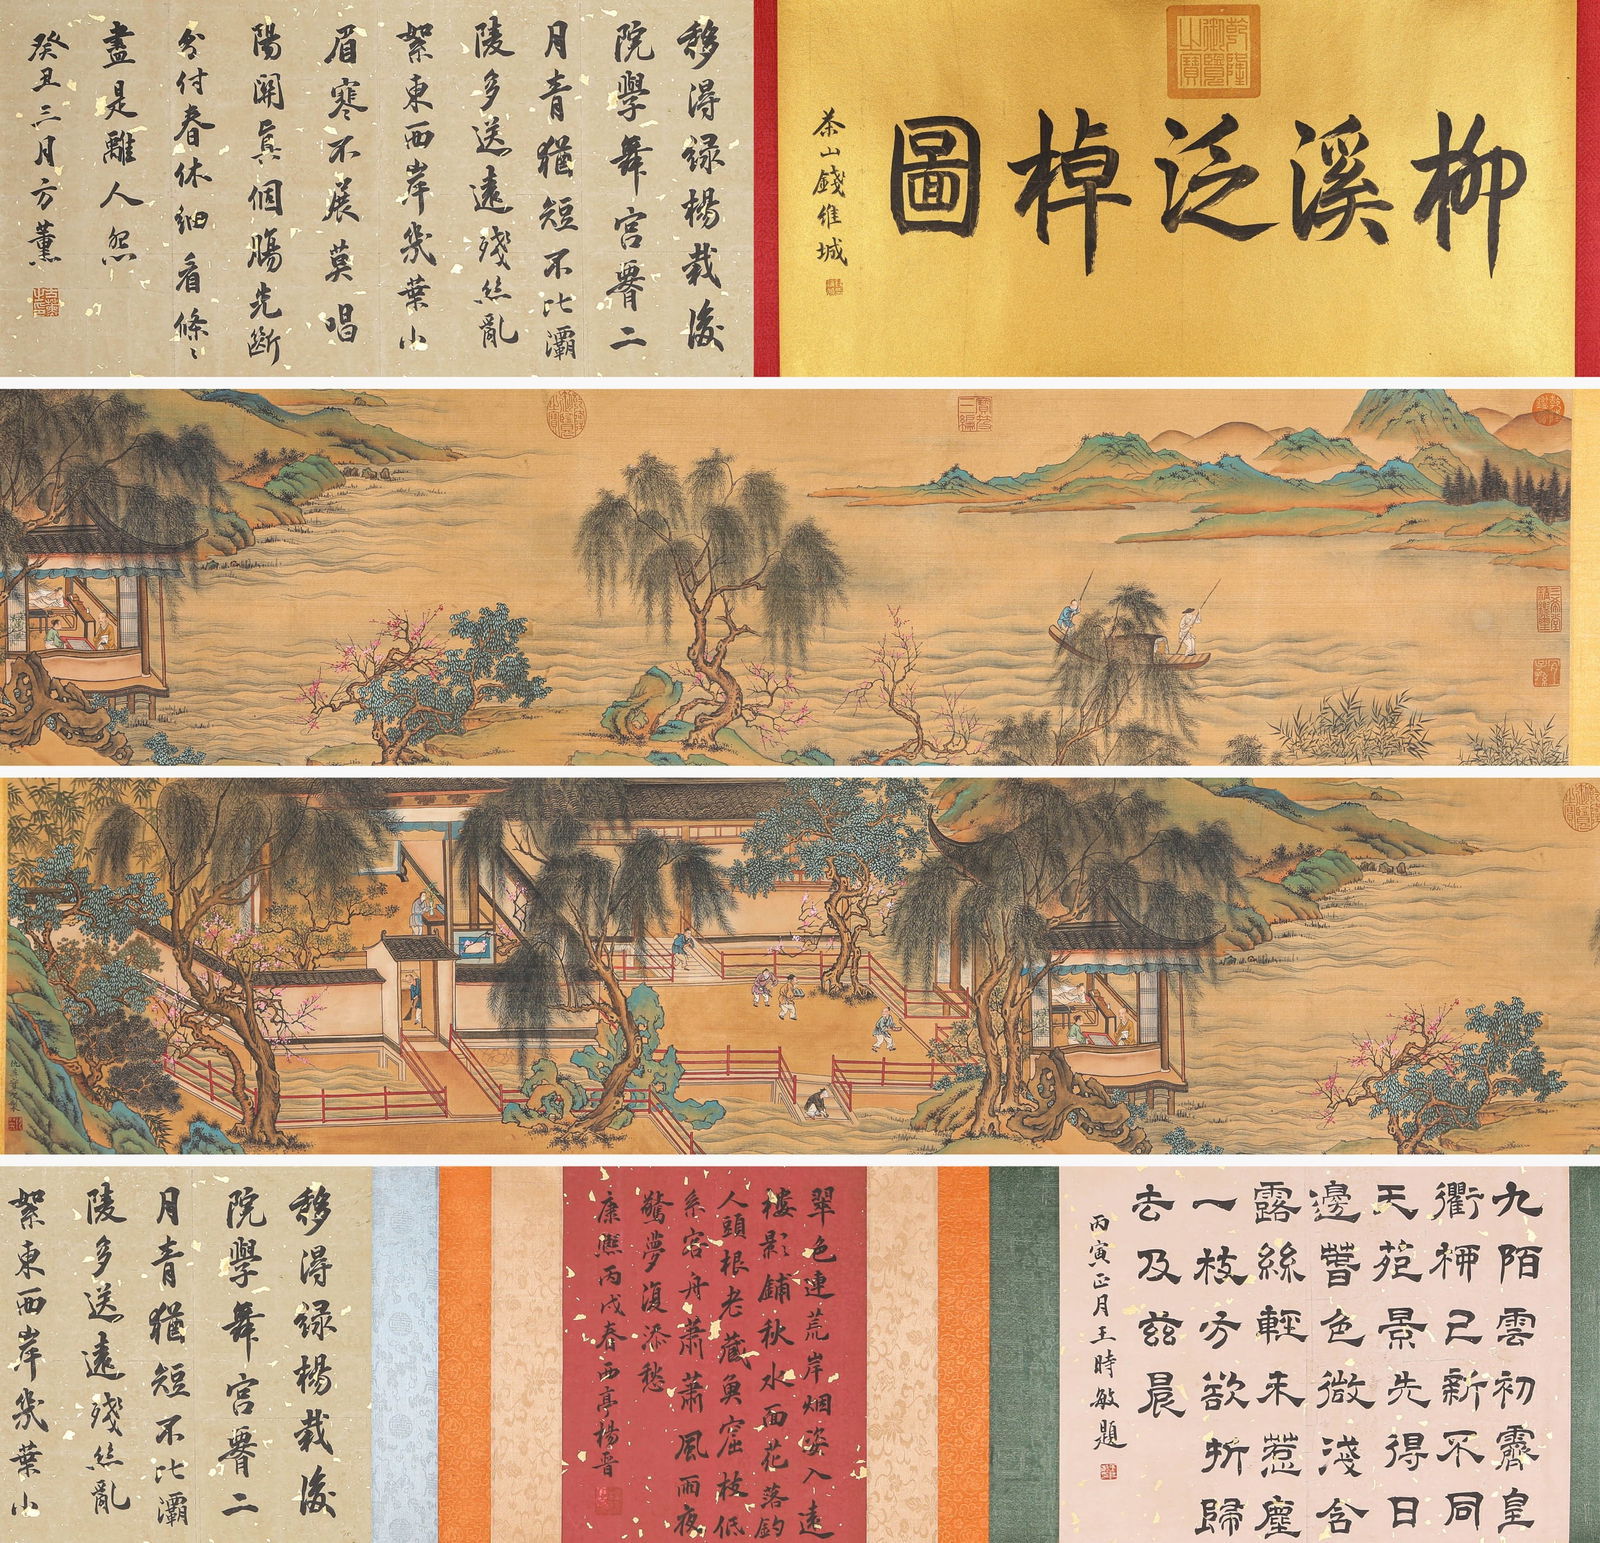 乾隆御覽之寶
柳溪泛棹圖
茶山錢維城
移得綠楊栽後
院學舞宮腰二
月青猶短不比灞
陵多送遠殘絲亂
絮東西岸幾葉小
眉寒不展莫唱
陽關真個腸先斷
分付春休細看條々
盡是離人怨
癸丑三月方薰
三希堂精鑑璽
宜子孫
寶笈三編
乾隆御覽之寶
九陌雲初霽皇
衢柳已新不同
天苑景先得日
邊春色微淺含
露絲輕未惹塵
一枝方欲折歸
去及兹晨
丙寅正月王時敏題
翠色連荒岸烟姿入遠
樓影鋪秋水面花落釣
人頭根老藏魚窟枝低
系客舟蕭蕭風雨夜
驚夢復添愁
康熙丙戌春西亭楊晋
移得綠楊栽後
院學舞宮腰二
月青猶短不比灞
陵多送遠殘絲亂
絮東西岸幾葉小